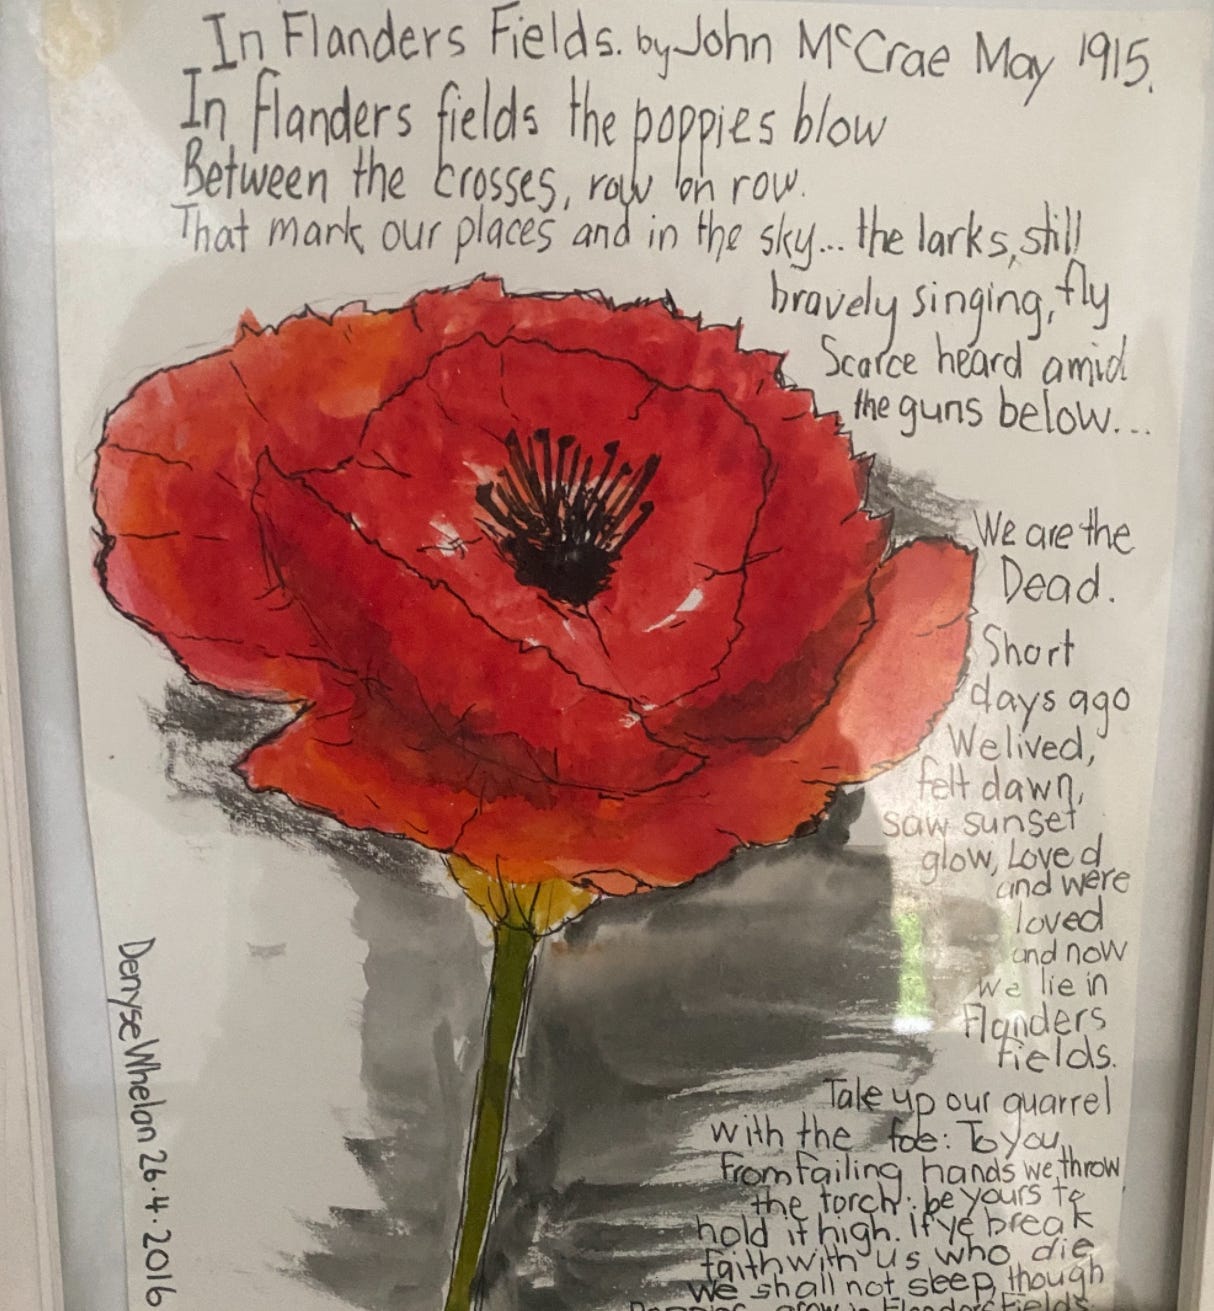 In Flanders Fields. by John McCrae May 1915.
In Flanders fields the poppies blow
Between the crosses, row on row.
That mark our places and in the sky... the larks, still
bravely singing, fly
Scarce heard amid
the guns below...
We are the
Dead.
Short
days ago
We lived,
felt dawn,
saw sunset
glow, Loved
and were
loved
and now
we lie in
Flanders
Fields.
Take up our quarrel
with the foe: To you
From failing hands we throw
the torch: be yours to
hold it high. If ye break
faith with us who die
We shall not sleep, though
Poppies grow in Flanders Fields
Denyse Whelan 26.4.2016